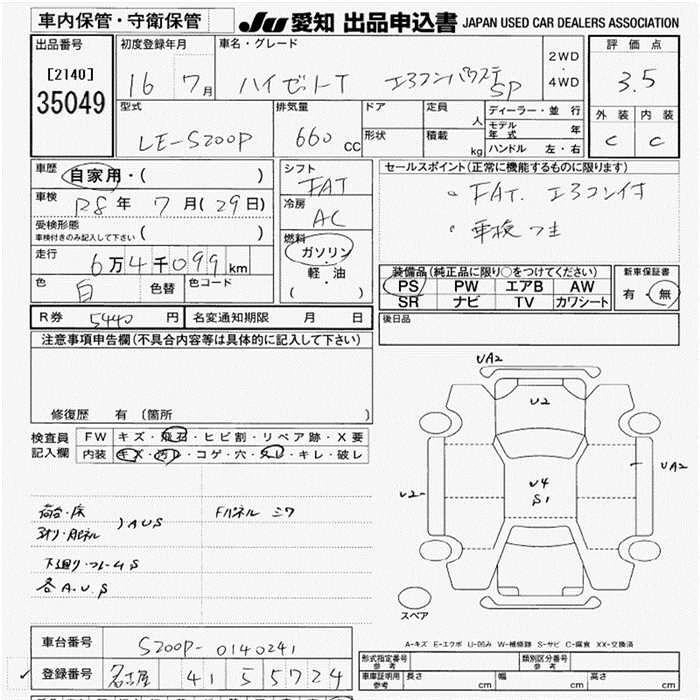 車内保管・守衛保管 JU 愛知 出品申込書 JAPAN USED CAR DEALERS ASSOCIATION
出品番号 初度登録年月 車名・グレード 2WD・4WD 評価点
[2140] 16 7月 ハイゼットT エアコンパワステ SP 3.5
35049
型式 排気量 ドア 定員 人 ディーラー・並行 外装 内装
LE-S200P 660cc 形状 積載 kg モデル年式 年 C C
ハンドル 左・右
車歴 自家用・( ) シフト FAT セールスポイント(正常に機能するものに限ります)
車検 R8年 7月(29日) 冷房 AC ・FAT. エアコン付
受検形態 車検付きのみ記入して下さい ( ) 燃料 ・車検つき
走行 6万4千099km ガソリン・軽・油 ( )
色 白 色替 色コード
装備品(純正品に限り○をつけてください) 新車保証書
PS PW エアB AW 有・無
SR ナビ TV カワシート
R券 5440円 名変通知期限 月 日 後日品
注意事項申告欄(不具合内容等は具体的に記入して下さい)
修復歴 有 (箇所 )
検査員記入欄 FW キズ・飛石・ヒビ割・リペア跡・X要
内装 キズ・汚レ・コゲ・穴・スレ・キレ・破レ
UA2
U2
UA2
U2
U4
S1
荷台・床
)AUS
Fパネル シワ
下廻り・フレームS
各A.U.S
スペア
A-キズ E-エクボ U-凹み W-補修跡 S-サビ C-腐食 XX-交換済
車台番号 S200P-0140241
登録番号 名古屋 41 5 5724
形式指定番号 参考 類別区分番号 参考
車庫証明用 参考 長さ cm 幅 cm 高さ cm